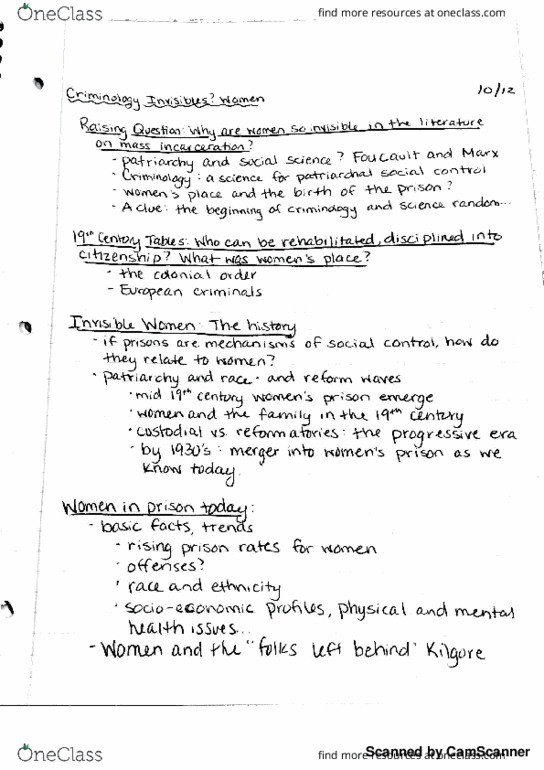 OneClass
find more resources at oneclass.com
10/12
Criminology Invisibles? Women
Raising Question: Why are women so invisible in the literature
on mass incarceration?
- patriarchy and social science? Foucault and Marx
- Criminology: a science for patriarchal social control
- women's place and the birth of the prison?
- A clue: the beginning of criminology and science random...
19th Century Tables: Who can be rehabilitated, disciplined into
citizenship? What was women's place?
- the colonial order
- European criminals
Invisible Women: The history
- if prisons are mechanisms of social control, how do
they relate to women?
• patriarchy and race - and reform waves
• mid 19th century women's prison emerge
• women and the family in the 19th century
• custodial vs. reformatories: the progressive era
• by 1930's: merger into women's prison as we
know today.
Women in prison today:
- basic facts, trends
• rising prison rates for women
• offenses?
• race and ethnicity
• socio-economic profiles, physical and mental
health issues...
- Women and the "folks left behind" Kilgore
OneClass
find more resources at oneclass.com
Scanned by CamScanner